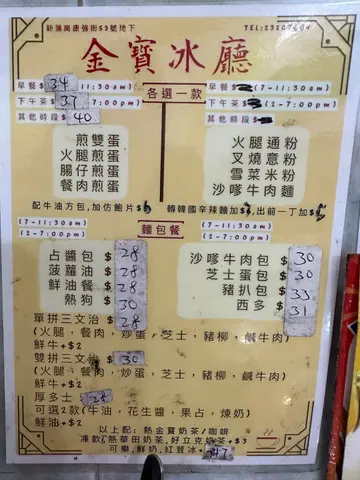 新蒲崗康強街53號地下
TEL:23207604
金寶冰廳
早餐 $ 34 -11:30am)
下午茶 $ 37 -7:00pm)
其他時段 $ 40
各選一款
早餐 (7-11:30am)
下午茶 (2-7:00pm)
其他時段 $
煎雙蛋
火腿煎蛋
腸仔煎蛋
餐肉煎蛋
火腿通粉
叉燒意粉
雪菜米粉
沙嗲牛肉麵
配牛油方包，加仿鮑片$
轉韓國辛辣麵加$，出前一丁加$
(7-11:30am)
(2-7:00pm)
麵包餐
(7-11:30am)
(2-7:00pm)
占醬包 $ 28
菠蘿油 $ 28
鮮油餐 $ 28
熱狗 $ 30
沙嗲牛肉包 $ 30
芝士蛋包 $ 30
豬扒包 $ 33
西多 $ 31
單拼三文治 $ 28
(火腿，餐肉，炒蛋，芝士，豬柳，鹹牛肉)
鮮牛+$2
雙拼三文治 30
(火腿，餐肉，炒蛋，芝士，豬柳，鹹牛肉)
鮮牛+$2
厚多士 $ 28
可選2款(牛油，花生醬，果占，煉奶)
鮮油+$2
以上配：熱金寶奶茶/咖啡
凍飲/熱華田奶茶,好立克奶茶+$3
可樂,鮮奶,紅荳冰+